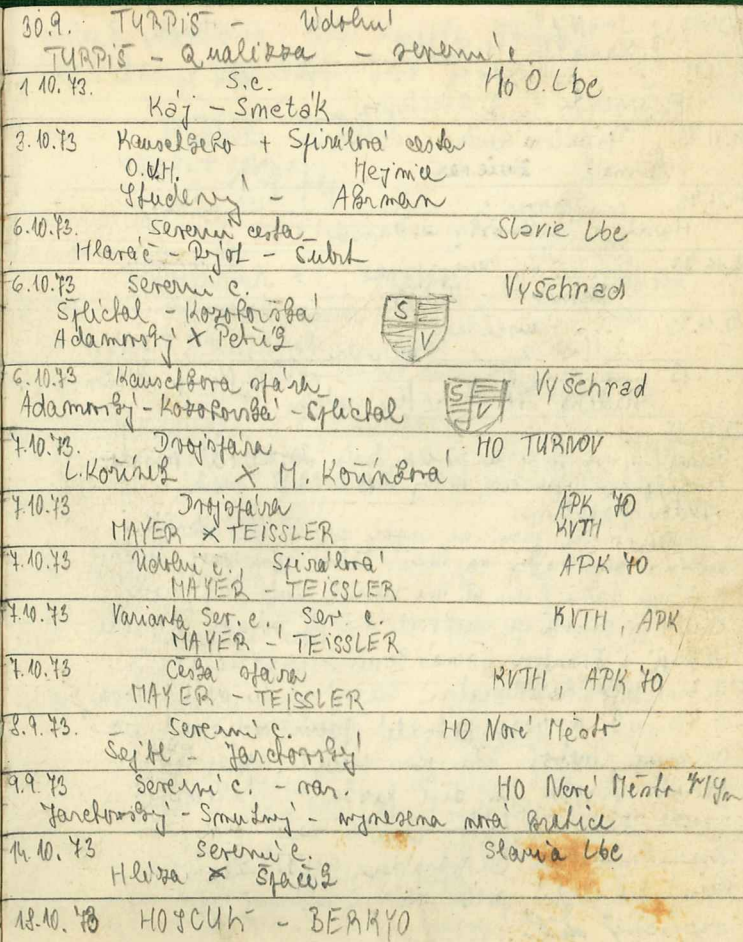 30.9. TYRPIŠ - Údolní
TYRPIŠ - Qualizza - severní c
1.10.73. S.c. Ho O. Lbc
Káj - Smeták
3.10.73 Kauschkeho + Spirálová cesta
O.V.H. Hejnice
Studený - Aßman
6.10.73. Severní cesta Slavie Lbc
Hlaváč - - Šubrt
6.10.73 Severní c. Vyšehrad
Šplíchal - Kozohorská
Adamovský x Petřík
S V
6.10.73 Kauschkova spára Vyšehrad
Adamovský - Kozohorská - Šplíchal
S V
7.10.73. Dvojspára HO TURNOV
L. Kořínek x M. Kořínková
7.10.73 Dvojspára APK 70
MAYER x TEISSLER KVTH
7.10.73 Údolní c., Spirálová APK 70
MAYER - TEISSLER
7.10.73 Varianta Sev. c., Sev. c. KVTH, APK
MAYER - TEISSLER
7.10.73 Česká spára KVTH, APK 70
MAYER - TEISSLER
8.9.73. Severní c. HO Nové Město
Šejbl - Jarchovský
9.9.73 Severní c. - var. HO Nové Město
Jarchovský - Smutný - vynesena nová krabice
14.10.73 Severní c. Slavia Lbc
Hlíza x Špaček
18.10.73 - BERKYO